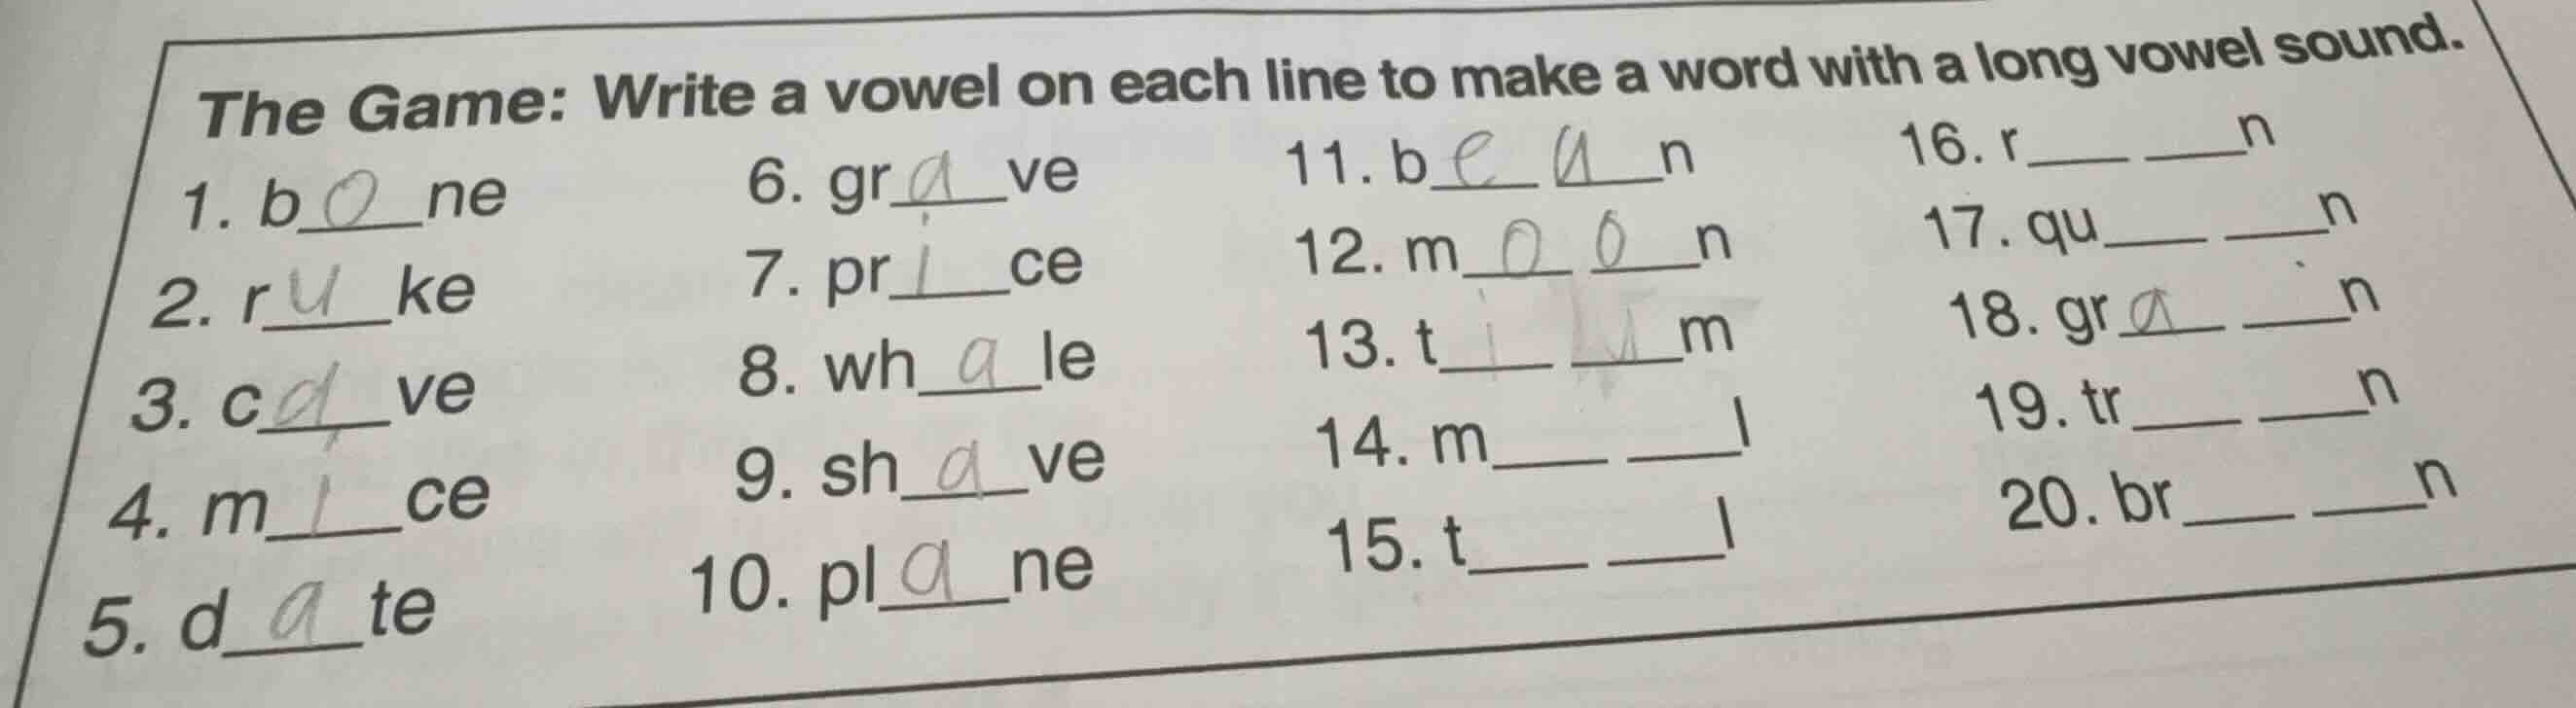 The Game: Write a vowel on each line to make a word with a long vowel sound.
1. b o ne
2. r u ke
3. c a ve
4. m i ce
5. d a te
6. gr a ve
7. pr i ce
8. wh a le
9. sh a ve
10. pl a ne
11. b e a n
12. m o o n
13. t i ___ m
14. m___ ___l
15. t___ ___l
16. r___ ___n
17. qu___ ___n
18. gr a ___n
19. tr___ ___n
20. br___ ___n